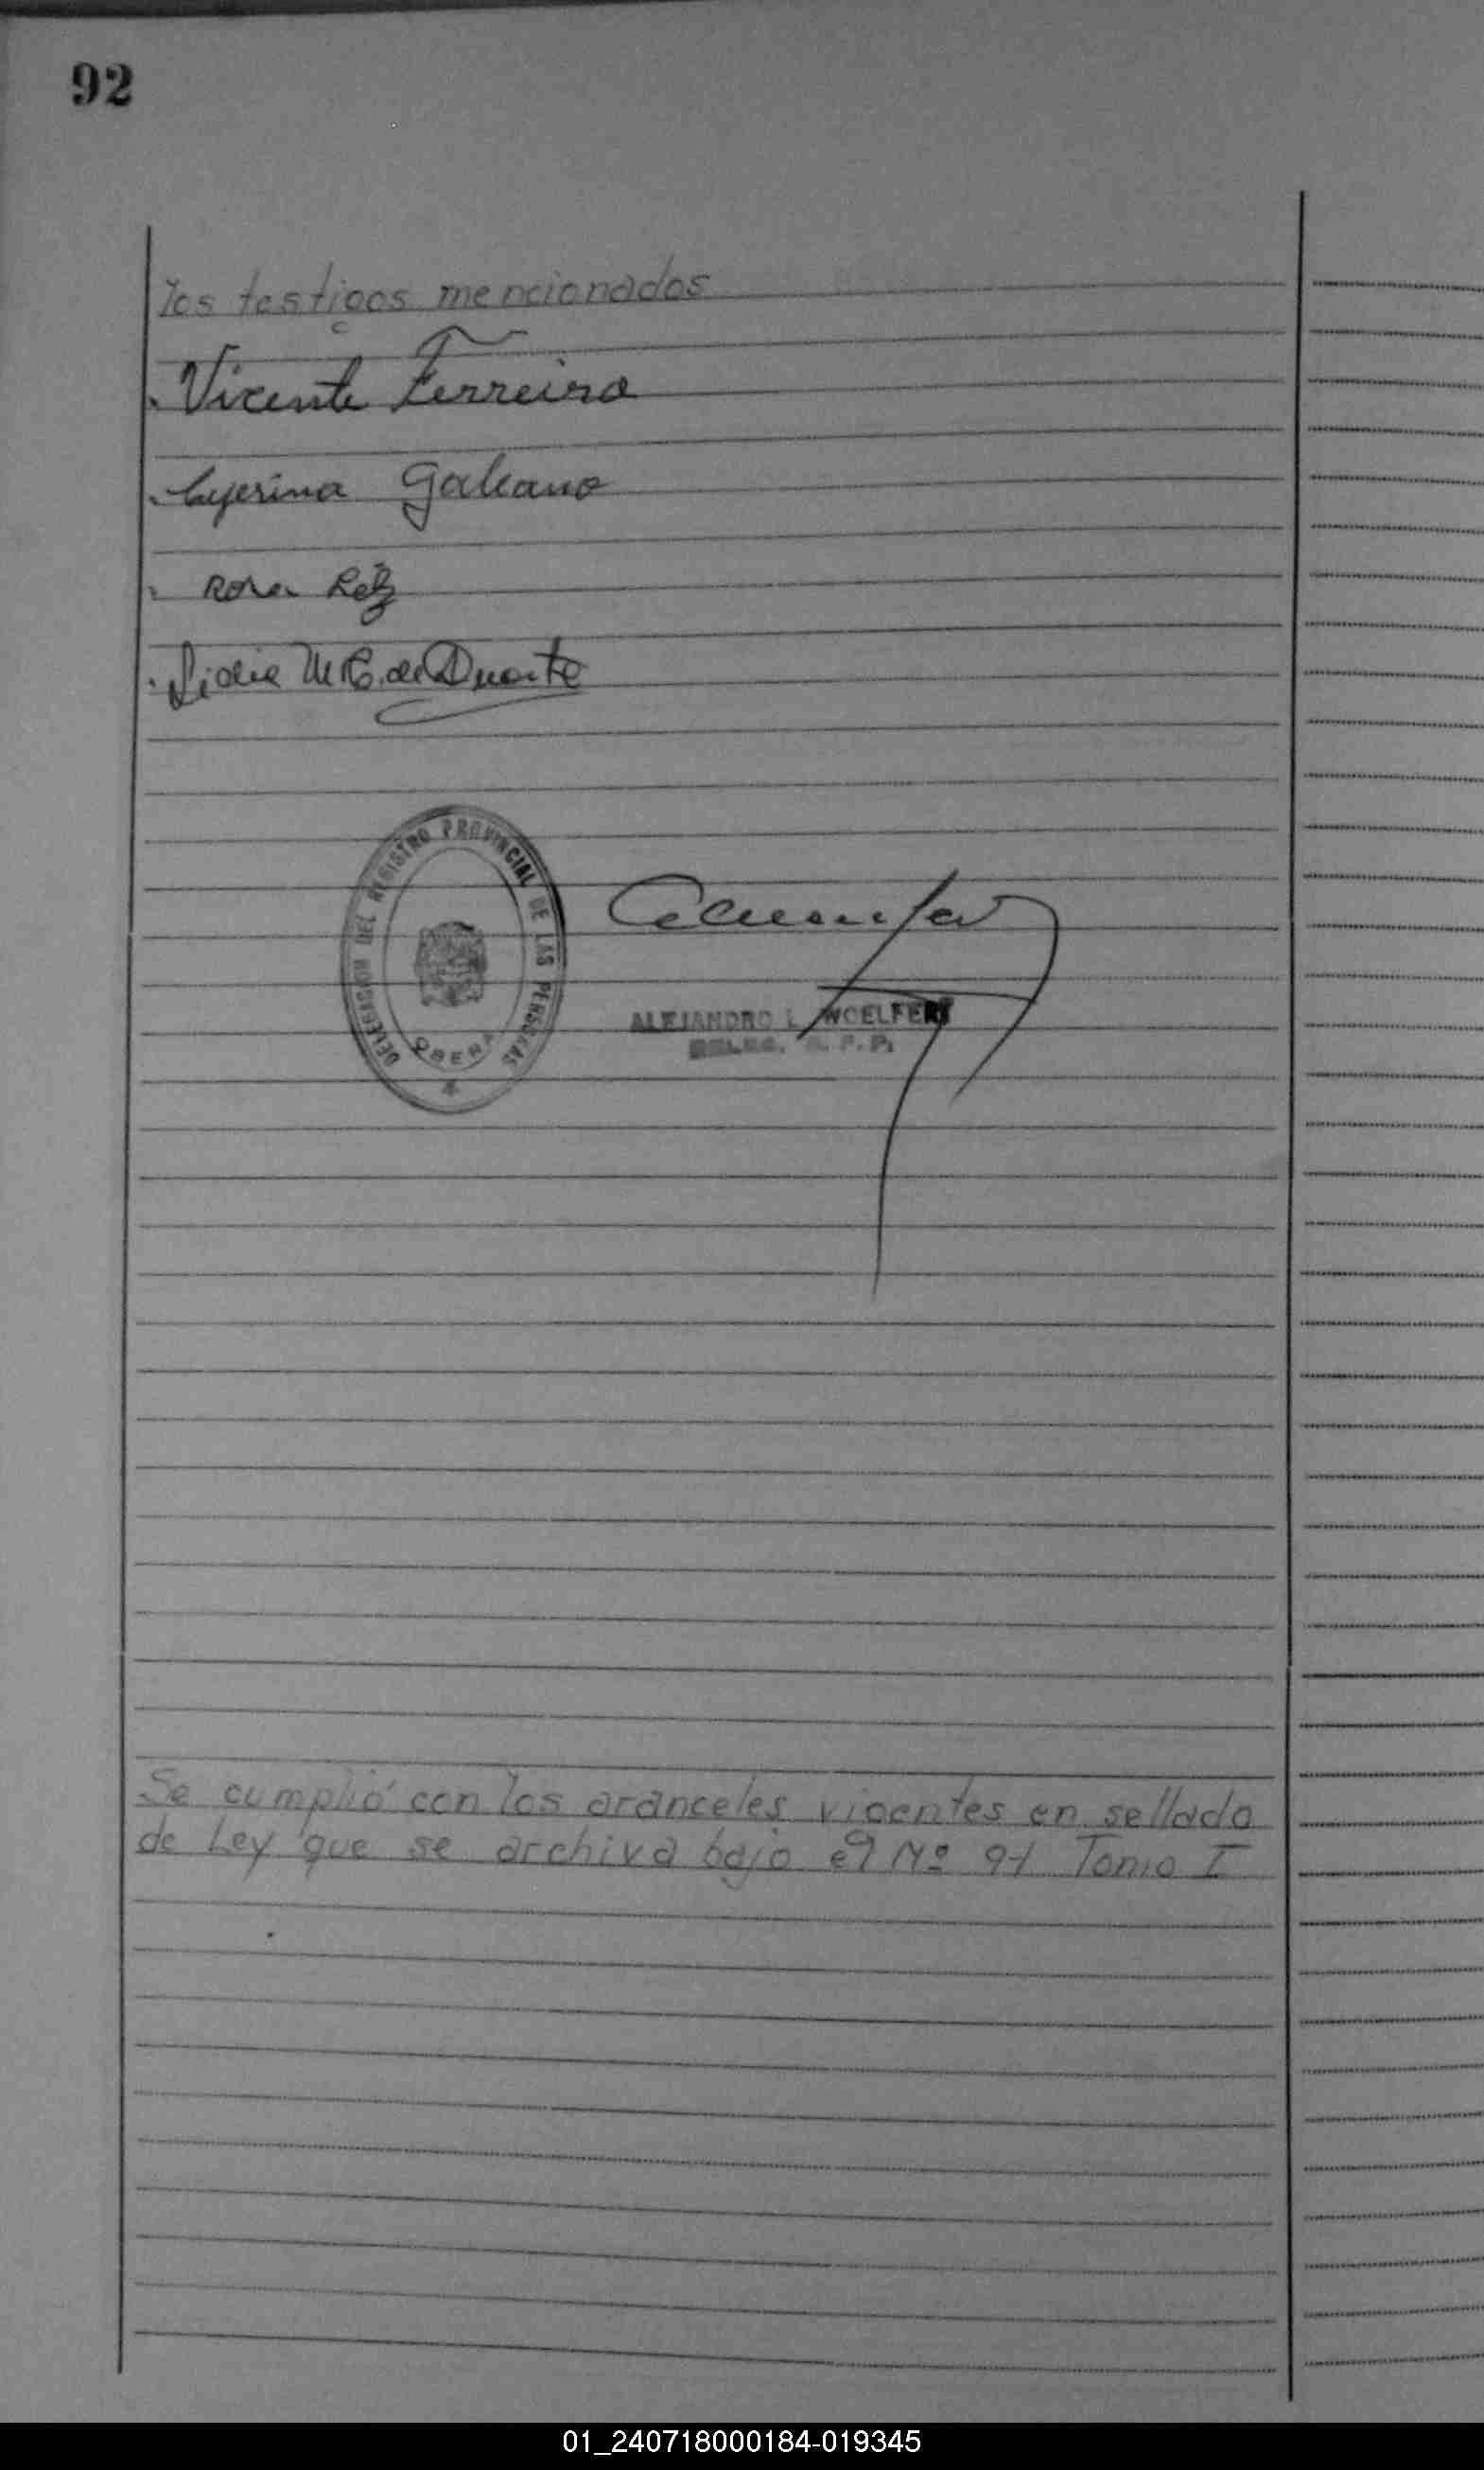 92
los testigos mencionados
Vicente Ferreira
Galeano
Rosa
Lidia M. de Duarte
DELEGACION DEL REGISTRO PROVINCIAL DE LAS PERSONAS
OBERA
ALEJANDRO L. WOELFERT
DELEG. R. P. P.
Se cumplió con los aranceles vigentes en sellado
de Ley que se archiva bajo el Nº 91 Tomo I
01_240718000184-019345